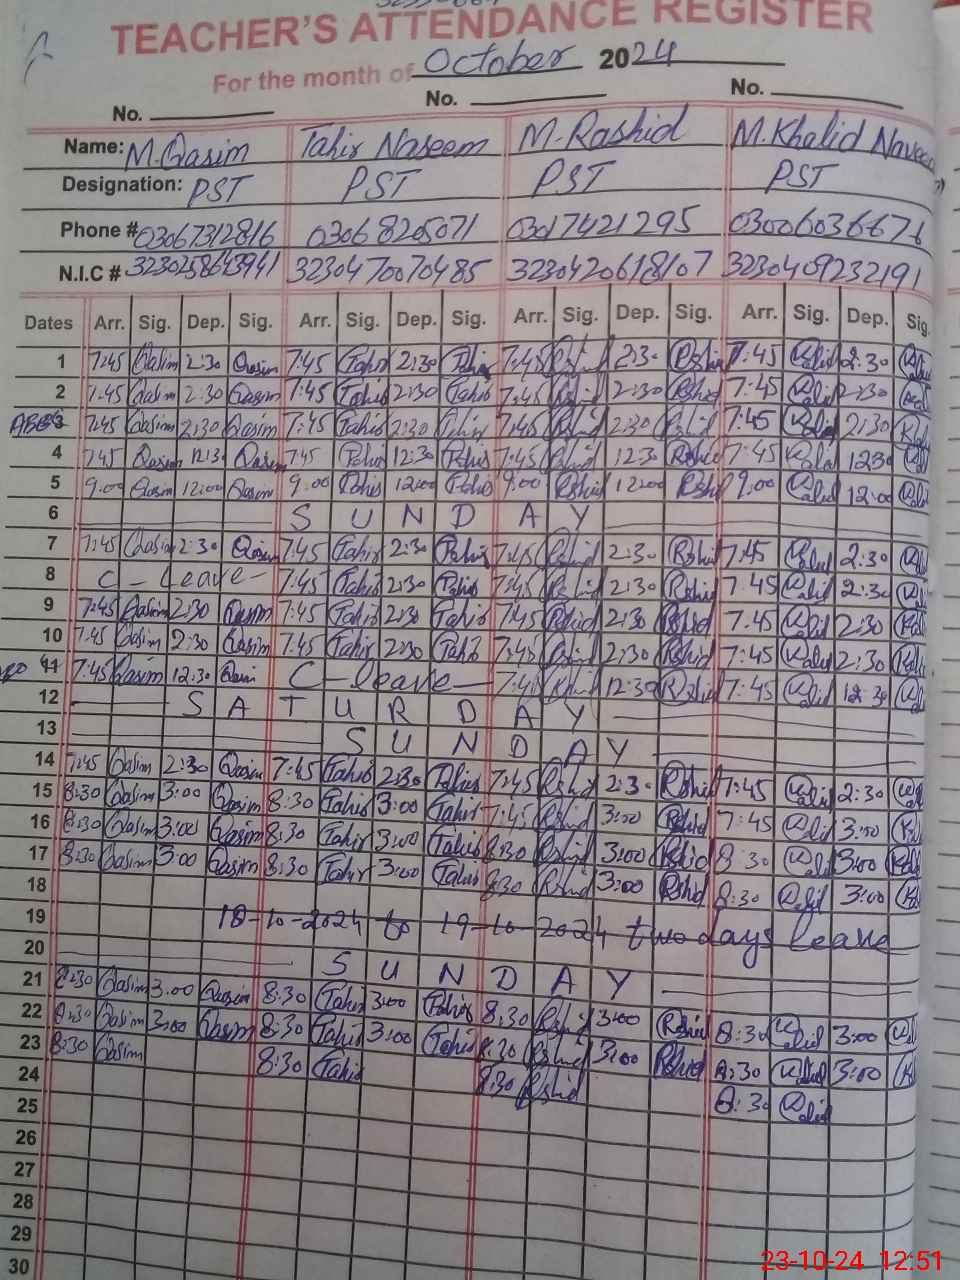 TEACHER'S ATTENDANCE REGISTER
For the month of October 2024
No. No. No.
Name: M.Qasim Tahir Naseem M.Rashid M.Khalid Naveed
Designation: PST PST PST PST
Phone # 03067312816 03068205071 03017421295 03006036676
N.I.C # 3230258643941 3230470070485 3230420618107 3230409232191
Dates Arr. Sig. Dep. Sig. Arr. Sig. Dep. Sig. Arr. Sig. Dep. Sig. Arr. Sig. Dep. Sig.
1 7:45 Qasim 2:30 Qasim 7:45 Tahir 2:30 Tahir 7:45 Rshid 2:30 Rshid 7:45 Kalid 2:30 Kalid
2 7:45 Qasim 2:30 Qasim 7:45 Tahir 2:30 Tahir 7:45 Rshid 2:30 Rshid 7:45 Kalid 2:30
3 7:45 Qasim 2:30 Qasim 7:45 Tahir 2:30 Tahir 7:45 Rshid 2:30 Rshid 7:45 Kalid 2:30
4 7:45 Qasim 12:30 Qasim 7:45 Tahir 12:30 Tahir 7:45 Rshid 12:30 Rshid 7:45 Kalid 12:30
5 9:00 Qasim 12:00 Qasim 9:00 Tahir 12:00 Tahir 9:00 Rshid 12:00 Rshid 9:00 Kalid 12:00 Kalid
6 SUNDAY
7 7:45 Qasim 2:30 Qasim 7:45 Tahir 2:30 Tahir 7:45 Rshid 2:30 Rshid 7:45 Kalid 2:30
8 C-Leave 7:45 Tahir 2:30 Tahir 7:45 Rshid 2:30 Rshid 7:45 Kalid 2:30
9 7:45 Qasim 2:30 Qasim 7:45 Tahir 2:30 Tahir 7:45 Rshid 2:30 Rshid 7:45 Kalid 2:30
10 7:45 Qasim 2:30 Qasim 7:45 Tahir 2:30 Tahir 7:45 Rshid 2:30 Rshid 7:45 Kalid 2:30
11 7:45 Qasim 12:30 Qasim C-leave 7:45 Rshid 12:30 Rshid 7:45 Kalid 12:30
12 SATURDAY
13 SUNDAY
14 7:45 Qasim 2:30 Qasim 7:45 Tahir 2:30 Tahir 7:45 Rshid 2:30 Rshid 7:45 Kalid 2:30
15 8:30 Qasim 3:00 Qasim 8:30 Tahir 3:00 Tahir 7:45 Rshid 3:00 Rshid 7:45 Kalid 3:00
16 8:30 Qasim 3:00 Qasim 8:30 Tahir 3:00 Tahir 8:30 Rshid 3:00 Rshid 8:30 Kalid 3:00
17 8:30 Qasim 3:00 Qasim 8:30 Tahir 3:00 Tahir 8:30 Rshid 3:00 Rshid 8:30 Kalid 3:00
18
19 18-10-2024 to 19-10-2024 two days leave
20 SUNDAY
21 8:30 Qasim 3:00 Qasim 8:30 Tahir 3:00 Tahir 8:30 Rshid 3:00 Rshid 8:30 Kalid 3:00
22 8:30 Qasim 3:00 Qasim 8:30 Tahir 3:00 Tahir 8:30 Rshid 3:00 Rshid 8:30 Kalid 3:00
23 8:30 Qasim 8:30 Tahir 8:30 Rshid 8:30 Kalid
24
25
26
27
28
29
30
23-10-24 12:51